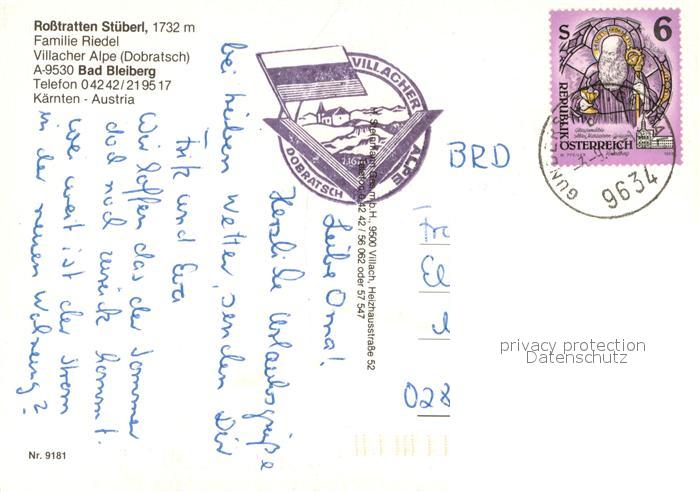 Roßtratten Stüberl, 1732 m
Familie Riedel
Villacher Alpe (Dobratsch)
A-9530 Bad Bleiberg
Telefon 0 42 42 / 21 95 17
Kärnten - Austria
VILLACHER ALPE
DOBRATSCH
S 6
REPUBLIK
ÖSTERREICH
9634
BRD
Liebe Oma!
Herzliche Urlaubsgrüße
bei trüben Wetter, senden Dir
Fritz und Eva
Wir hoffen das der Sommer
doch noch zurück kommt.
Wie weit ist der Strom
in der neuen Wohnung?
9500 Villach, Heizhausstraße 52
42 42 / 56 062 oder 57 547
028
privacy protection
Datenschutz
Nr. 9181